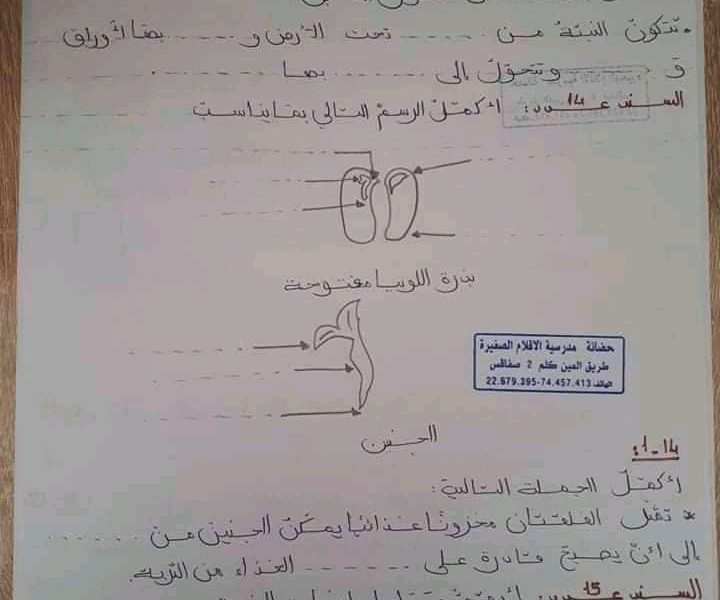 • تتكون النبتة من ..... تحت الأرض و ..... بها أوراق
و ..... وتتحول إلى ..... بها ..... .
السند عـ14ـدد: أكمل الرسم التالي بما يناسب
بذرة اللوبيا مفتوحة
حضانة مدرسية الاقلام الصغيرة
طريق العين كلم 2 صفاقس
الهاتف 22.679.395-74.457.413
الجنين
1-14:
أكمل الجملة التالية:
* تمثل الفلقتان مخزونا غذائيا يمكن الجنين من ......
إلى أن يصبح قادرة على ...... الغذاء من التربة.
السند عـ15ـدد: